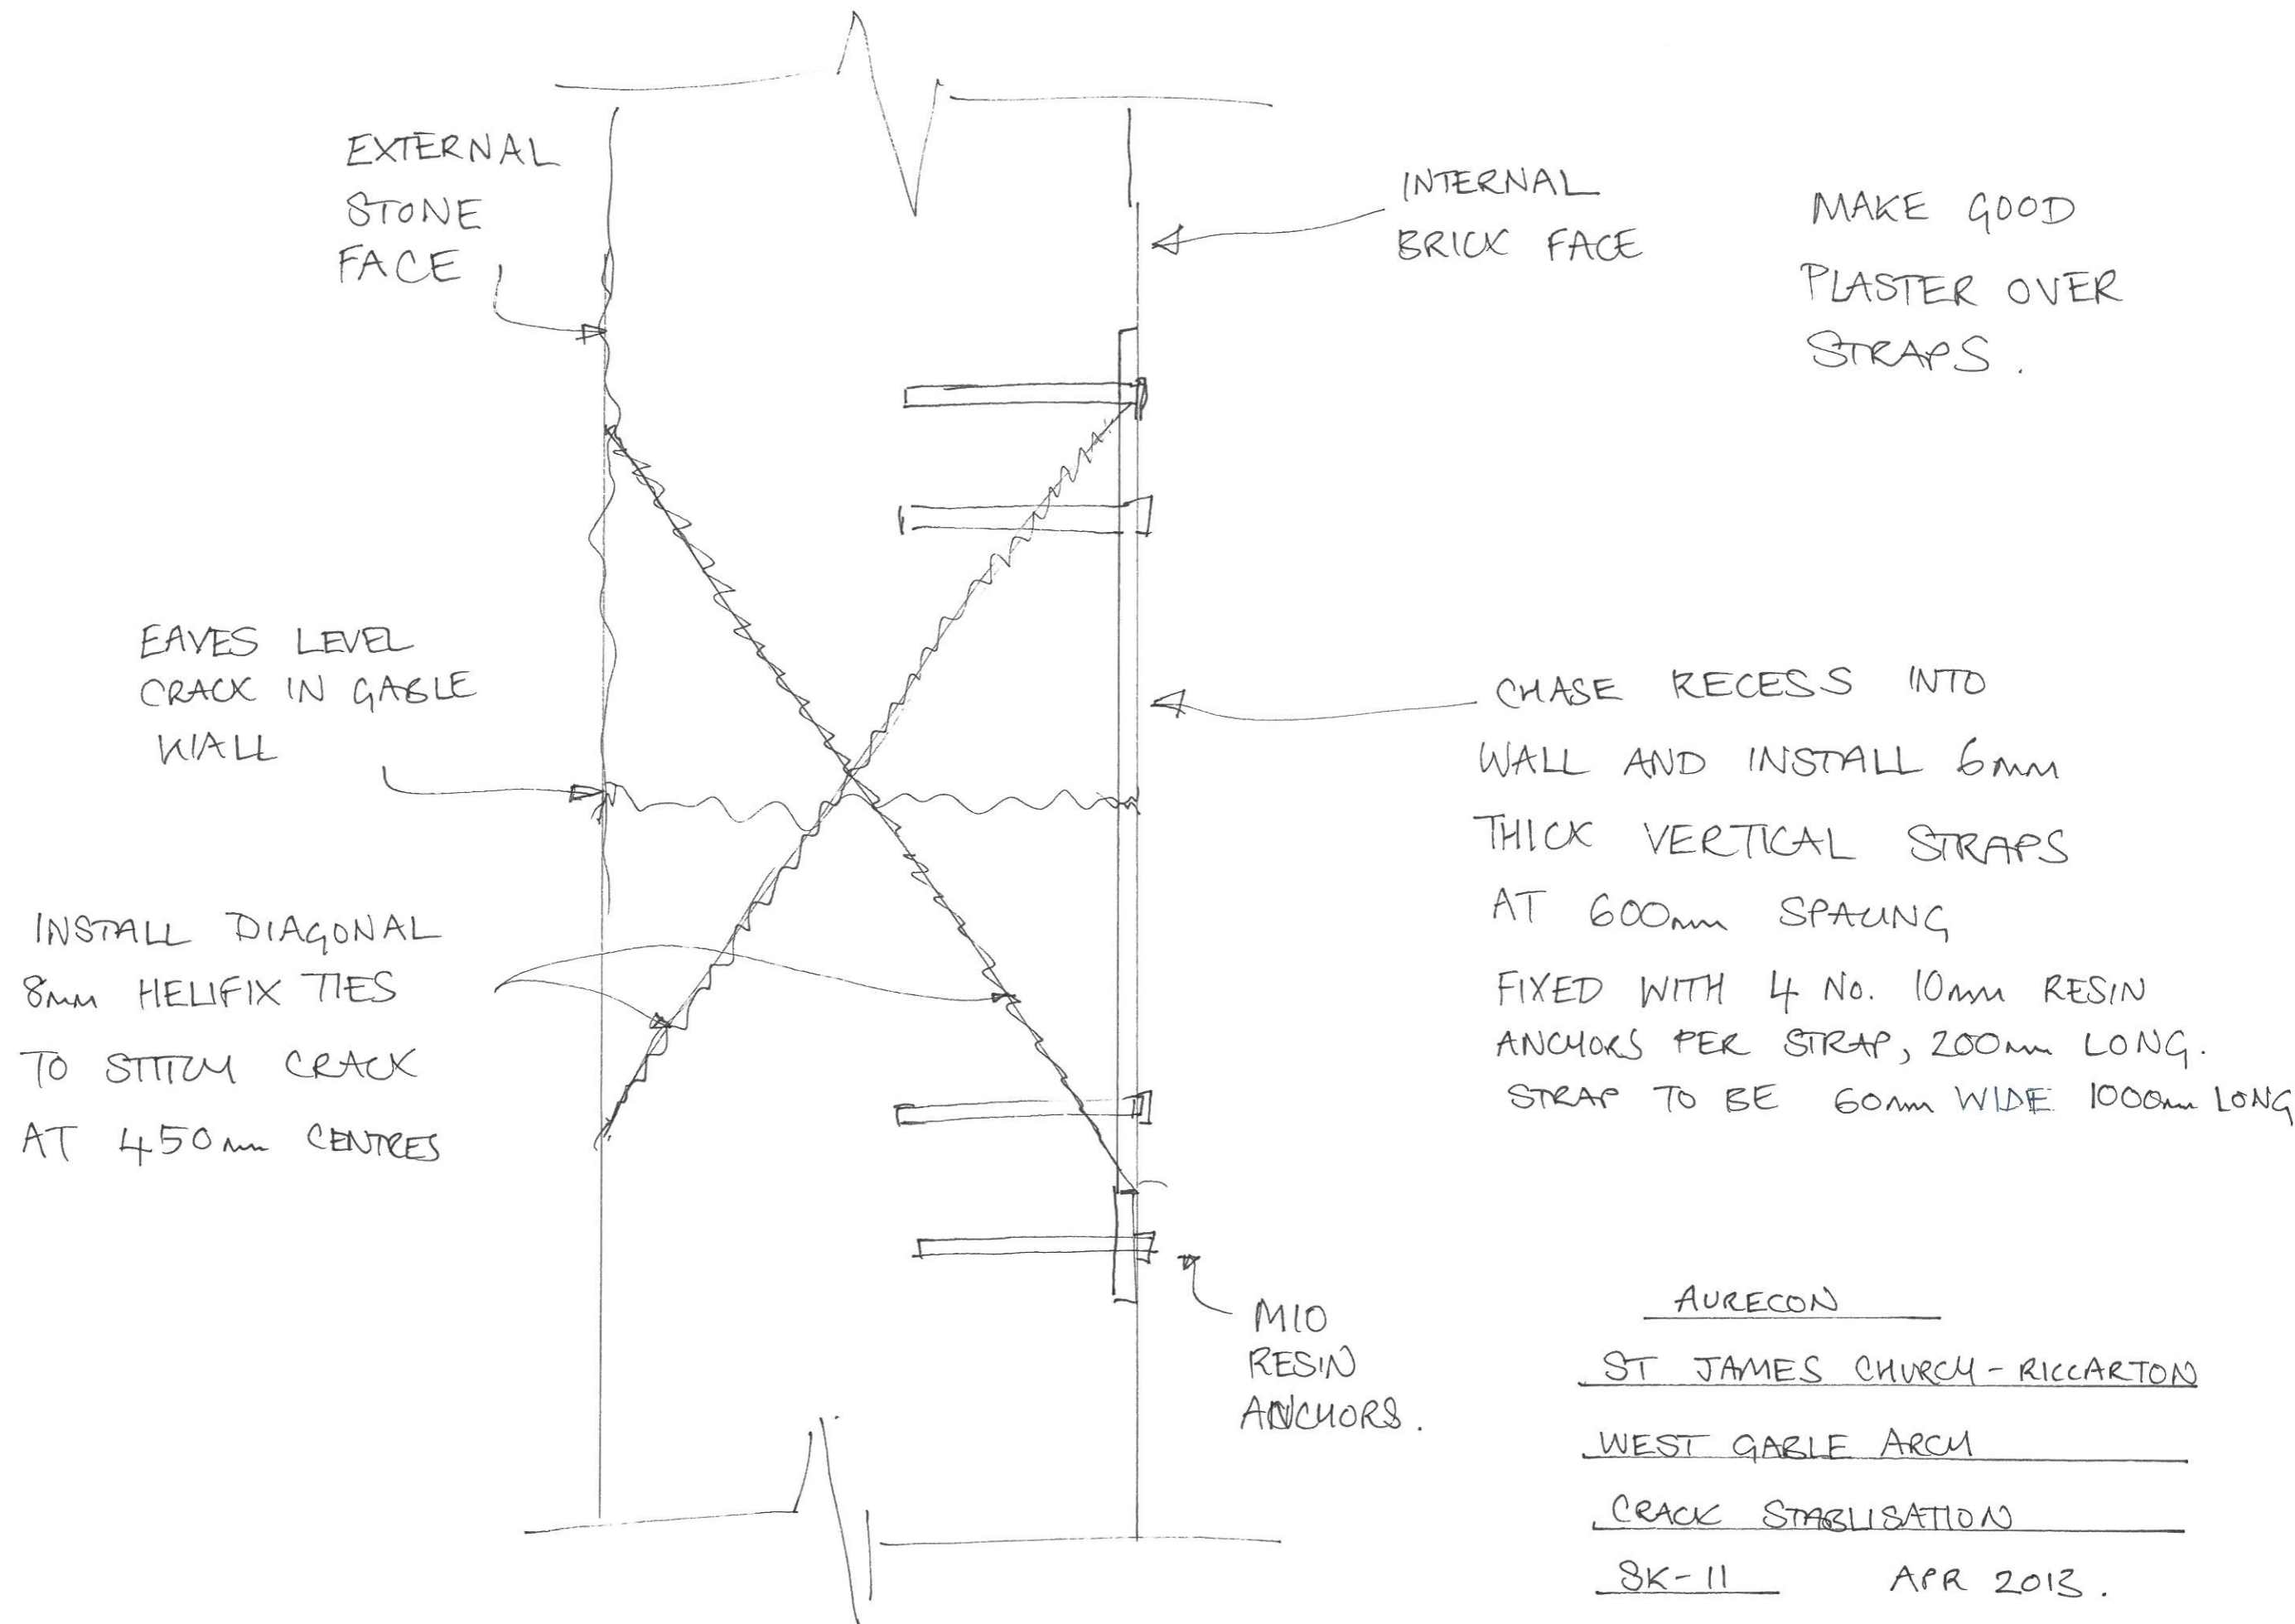 EXTERNAL
STONE
FACE
INTERNAL
BRICK FACE
MAKE GOOD
PLASTER OVER
STRAPS.
EAVES LEVEL
CRACK IN GABLE
WALL
CHASE RECESS INTO
WALL AND INSTALL 6mm
THICK VERTICAL STRAPS
AT 600mm SPACING
FIXED WITH 4 No. 10mm RESIN
ANCHORS PER STRAP, 200mm LONG.
STRAP TO BE 60mm WIDE 1000mm LONG
INSTALL DIAGONAL
8mm HELIFIX TIES
TO STITCH CRACK
AT 450mm CENTRES
M10
RESIN
ANCHORS.
AURECON
ST JAMES CHURCH - RICCARTON
WEST GABLE ARCH
CRACK STABLISATION
SK-11 APR 2013.